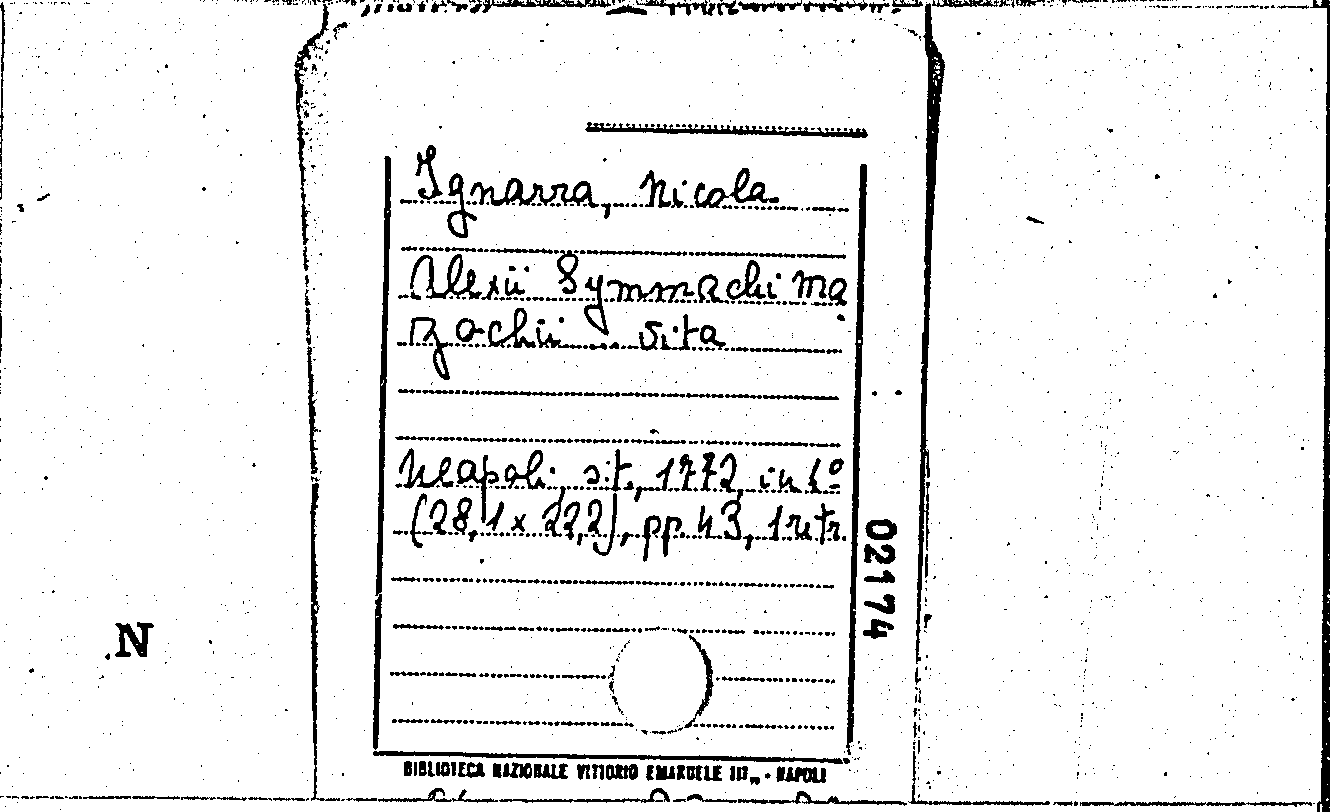 Ignarra, Nicola
Alexii Symmachi Ma
zochii ... vita
Neapoli, s.t., 1772, in 4º
(28,1 x 22,2), pp. 43, 1 ritr.
02174
N
BIBLIOTECA NAZIONALE VITTORIO EMANUELE III„ - NAPOLI